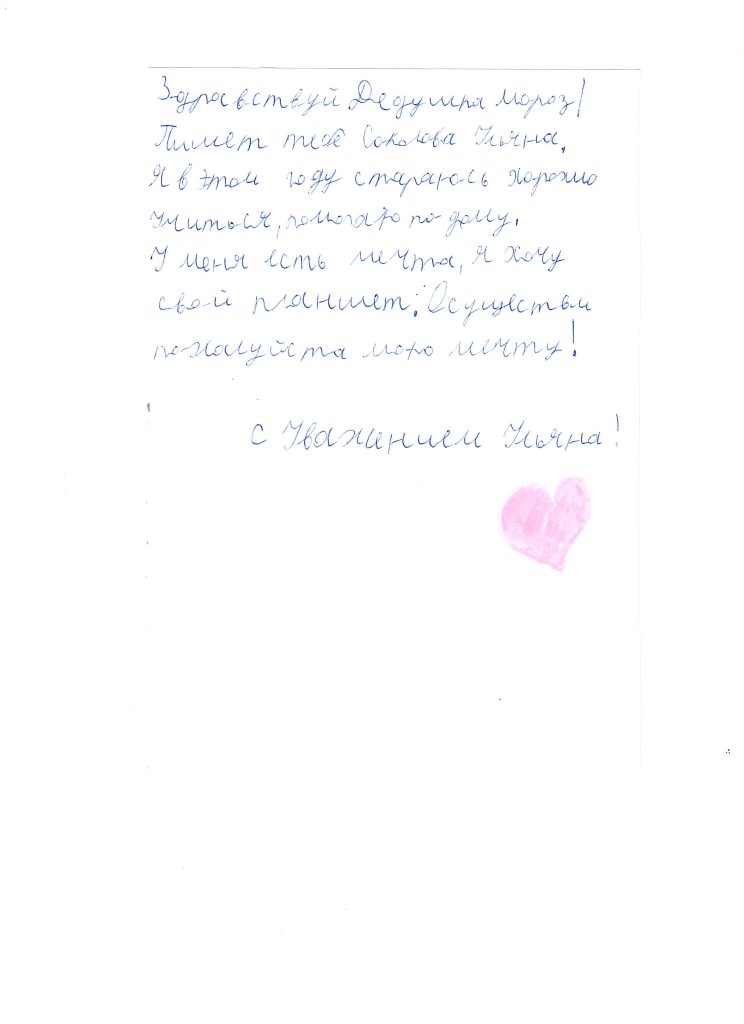 Здравствуй Дедушка мороз!
Пишет тебе Соколова Ульяна,
Я в этом году стараюсь хорошо
Учиться, помогаю по дому.
У меня есть мечта, я хочу
свой планшет! Осуществи
пожалуйста мою мечту!
С Уважением Ульяна!